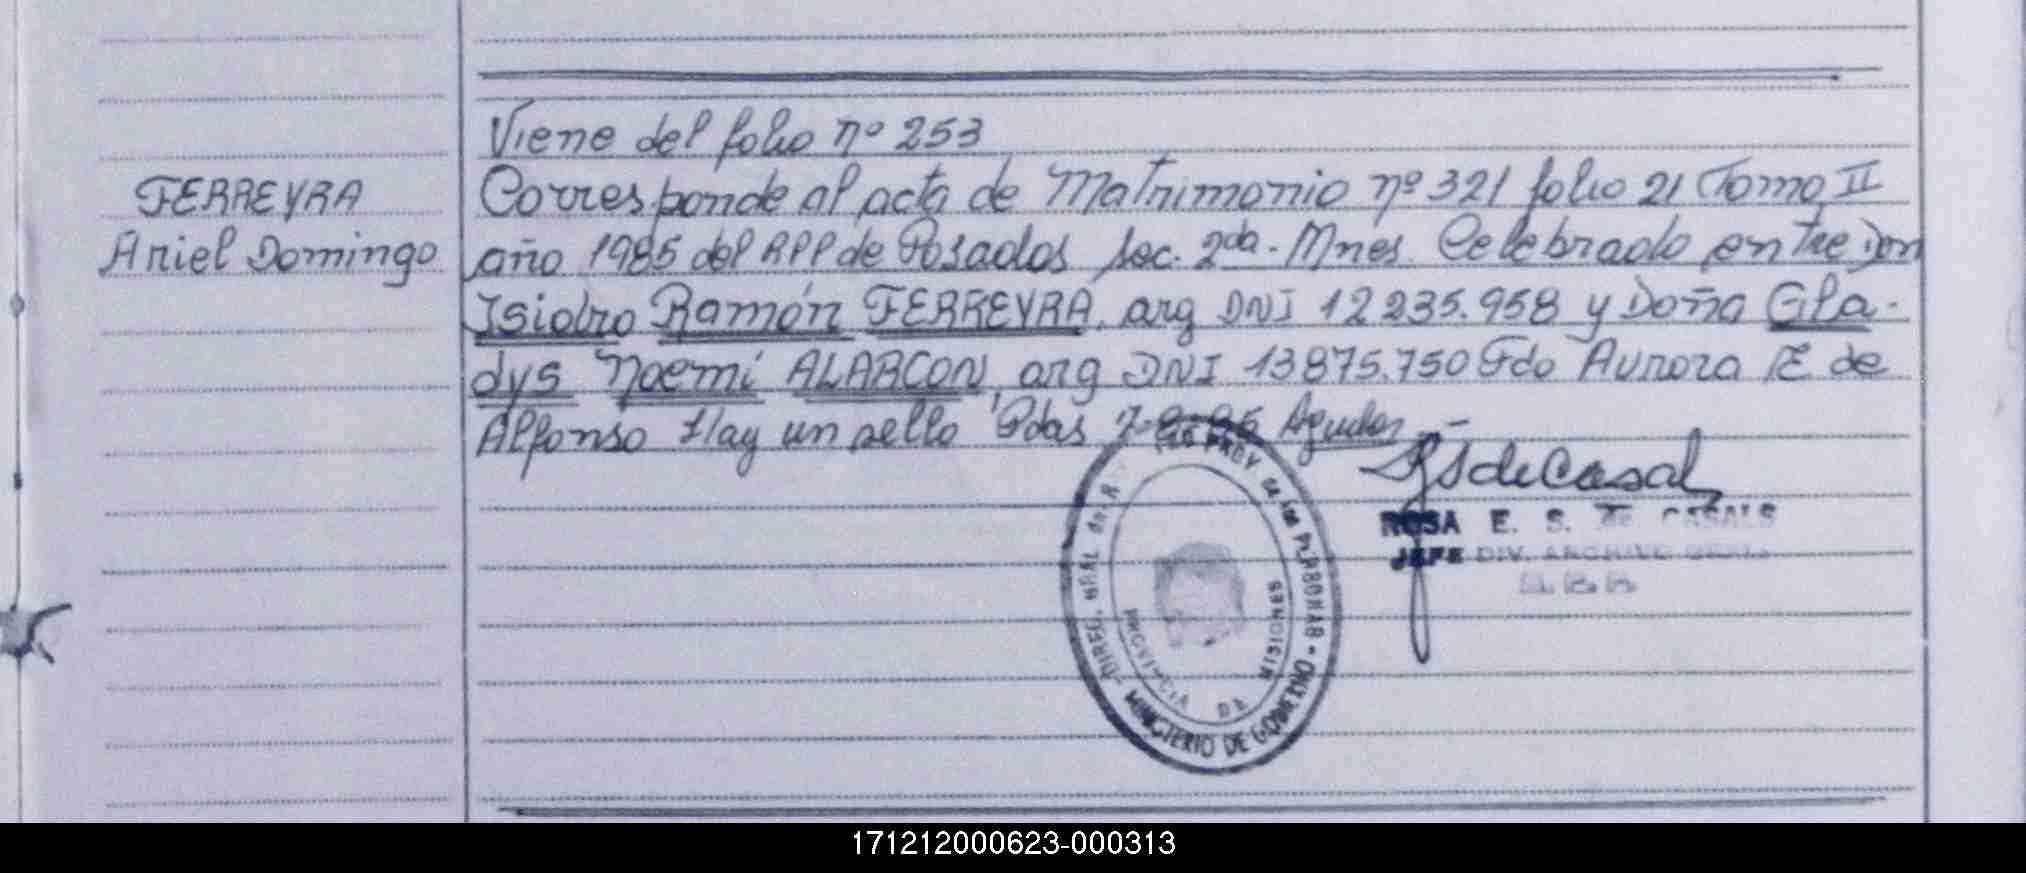 Viene del folio nº 253
FERREYRA
Ariel Domingo
Corresponde al acta de Matrimonio nº 321 folio 21 Tomo II
año 1985 del RPP de Posadas sec. 2da - Mnes. Celebrado entre Don
Isidro Ramón FERREYRA, arg DNI 12.235.958 y Doña Gla-
dys Noemí ALARCON, arg DNI 13875.750 Fdo Aurora E de
Alfonso Hay un sello Pdas
RS de Casal
ROSA E. S. de CASALS
JEFE DIV. ARCHIVO GRAL.
PROV. de las PERSONAS - MINISTERIO DE GOBIERNO - DIREC. GRAL de R
PROVINCIA DE MISIONES
171212000623-000313